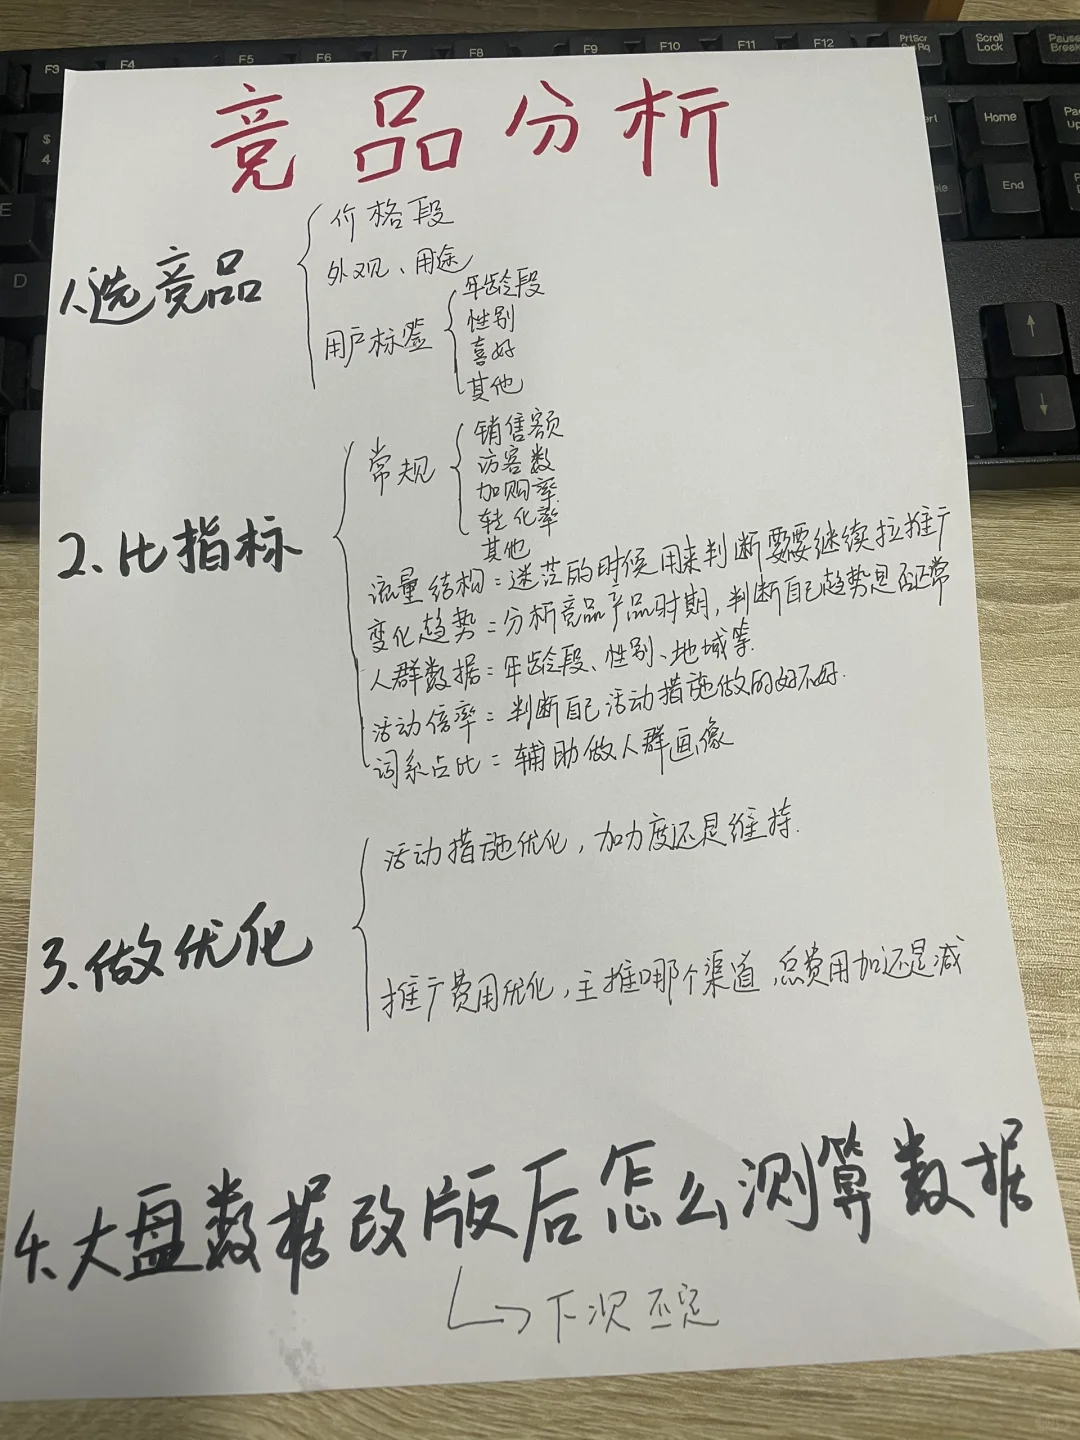 F3 F4 F5 F6 F7 F8 F9 F10 F11 F12 PrtScr Scroll Lock Pause Break
$ 4 Home
E End
D
↑
↓
竞品分析
1.选竞品
价格段
外观、用途
用户标签
年龄段
性别
喜好
其他
2.比指标
常规
销售额
访客数
加购率
转化率
其他
流量结构:迷茫的时候用来判断要要继续拉推广
变化趋势:分析竞品产品时期,判断自己趋势是否正常
人群数据:年龄段、性别、地域等.
活动倍率:判断自己活动措施做的好不好.
词系占比:辅助做人群画像
3.做优化
活动措施优化,加力度还是维持.
推广费用优化,主推哪个渠道,总费用加还是减
4.大盘数据改版后怎么测算数据
→下次